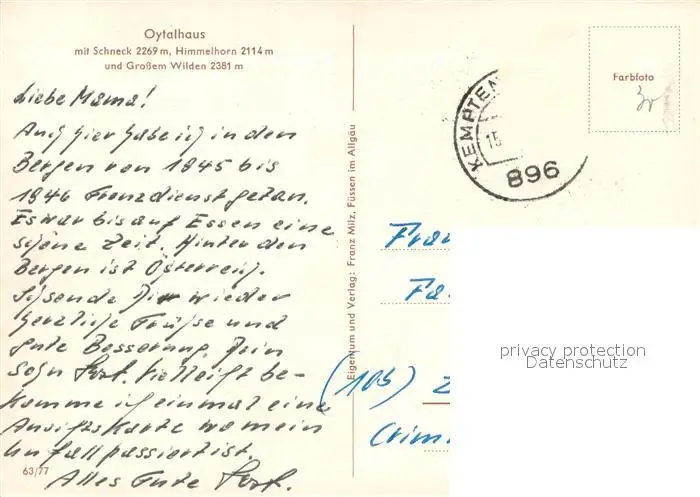 Oytalhaus
mit Schneck 2269 m, Himmelhorn 2114 m
und Großem Wilden 2381 m
Liebe Mama!
Auch hier habe ich in den
Bergen von 1945 bis
1946 Grenzdienst getan.
Es war bis auf Essen eine
schöne Zeit. Hinter den
Bergen ist Österreich.
Ich sende Dir wieder
herzliche Grüße und
gute Besserung. Dein
Sohn Horst. Vielleicht be-
komme ich einmal eine
Ansichtskarte wo mein
Unfall passiert ist.
63/77
Alles Gute Horst.
Eigentum und Verlag: Franz Milz, Füssen im Allgäu
Farbfoto
KEMPTEN
15
896
(10b)
Crim
privacy protection
Datenschutz